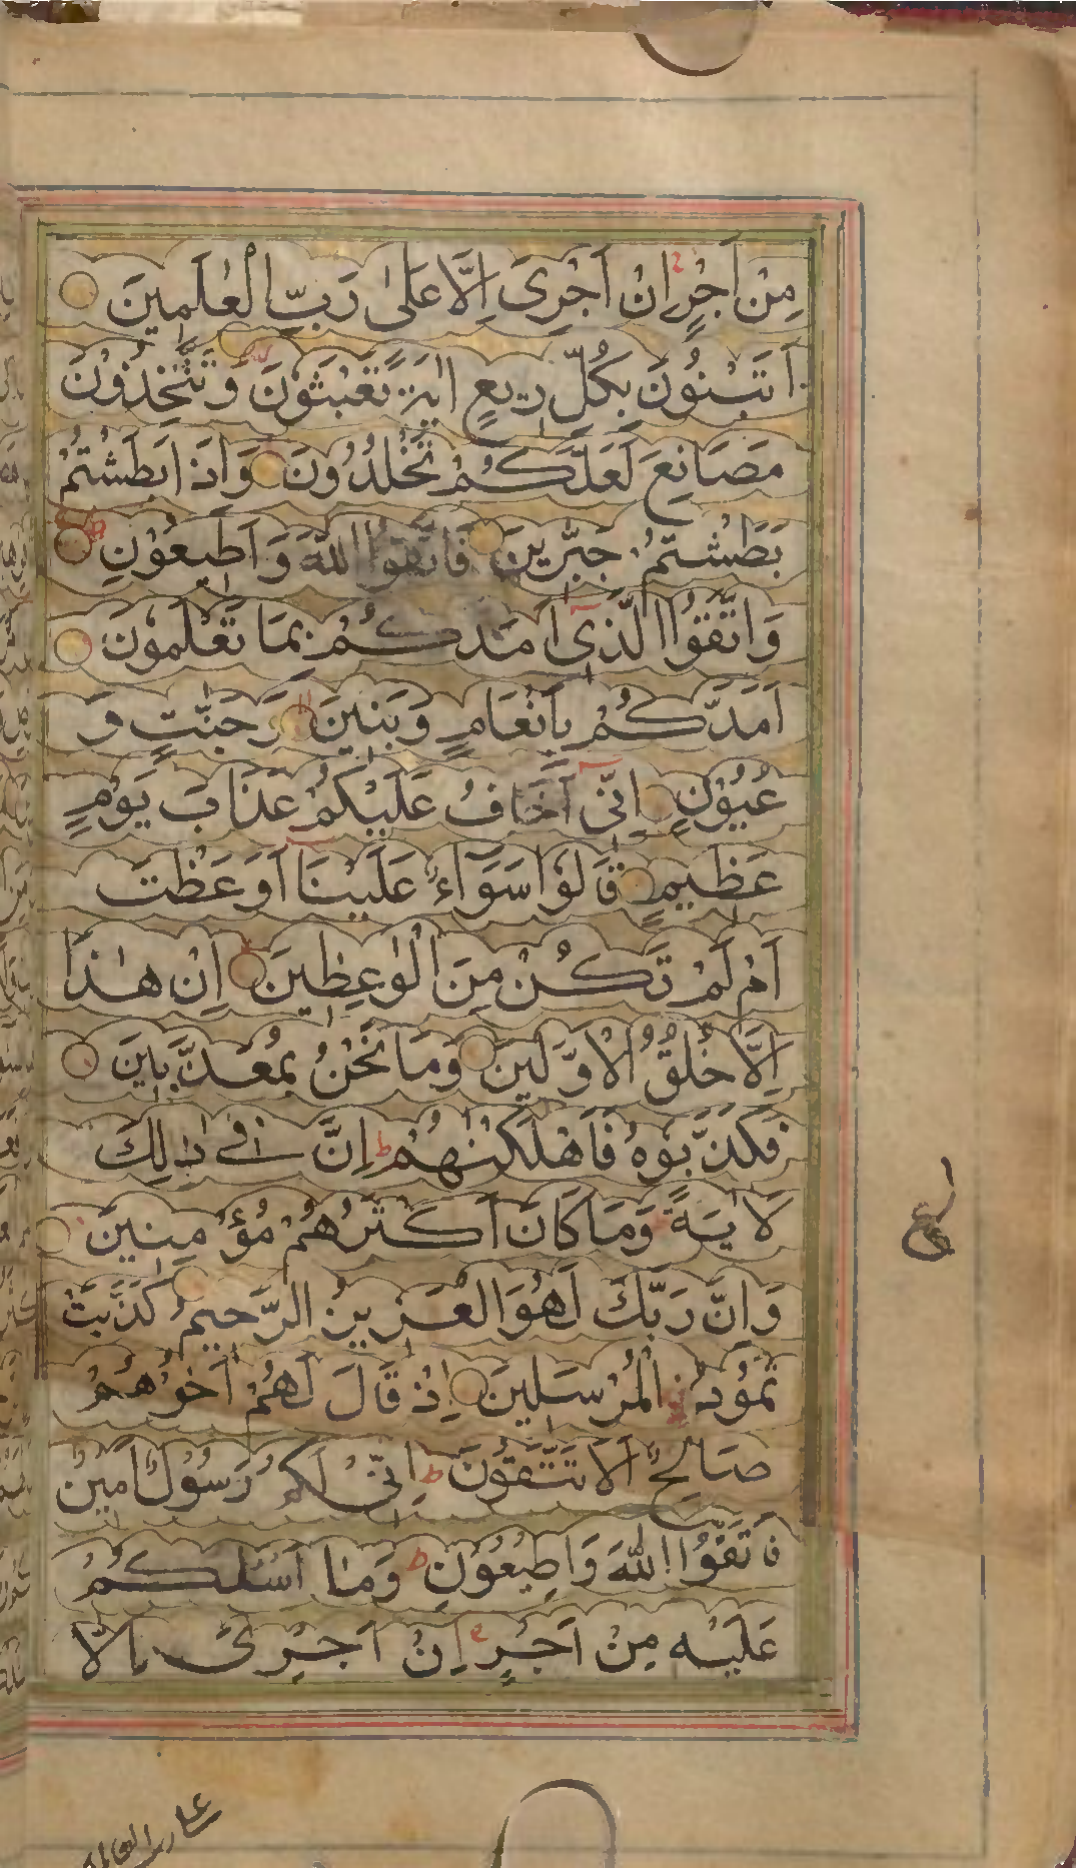 مِنْ اَجْرٍ اِنْ اَجْرِىَ اِلَّا عَلٰى رَبِّ الْعٰلَمِيْنَ
اَتَبْنُوْنَ بِكُلِّ رِيْعٍ اٰيَةً تَعْبَثُوْنَ وَتَتَّخِذُوْنَ
مَصَانِعَ لَعَلَّكُمْ تَخْلُدُوْنَ وَاِذَا بَطَشْتُمْ
بَطَشْتُمْ جَبّٰرِيْنَ فَاتَّقُوا اللّٰهَ وَاَطِيْعُوْنِ
وَاتَّقُوا الَّذِىْٓ اَمَدَّكُمْ بِمَا تَعْلَمُوْنَ
اَمَدَّكُمْ بِاَنْعَامٍ وَّبَنِيْنَ وَجَنّٰتٍ وَّ
عُيُوْنٍ اِنِّىْٓ اَخَافُ عَلَيْكُمْ عَذَابَ يَوْمٍ
عَظِيْمٍ قَالُوْا سَوَآءٌ عَلَيْنَآ اَوَعَظْتَ
اَمْ لَمْ تَكُنْ مِنَ الْوٰعِظِيْنَ اِنْ هٰذَا
اِلَّا خُلُقُ الْاَوَّلِيْنَ وَمَا نَحْنُ بِمُعَذَّبِيْنَ
فَكَذَّبُوْهُ فَاَهْلَكْنٰهُمْ ط اِنَّ فِىْ ذٰلِكَ
لَاٰيَةً وَمَا كَانَ اَكْثَرُهُمْ مُؤْمِنِيْنَ
وَاِنَّ رَبَّكَ لَهُوَ الْعَزِيْزُ الرَّحِيْمُ كَذَّبَتْ
ثَمُوْدُ الْمُرْسَلِيْنَ اِذْ قَالَ لَهُمْ اَخُوْهُمْ
صَالِحٌ اَلَا تَتَّقُوْنَ ط اِنِّىْ لَكُمْ رَسُوْلٌ اَمِيْنٌ
فَاتَّقُوا اللّٰهَ وَاَطِيْعُوْنِ ط وَمَا اَسْـَٔلُكُمْ
عَلَيْهِ مِنْ اَجْرٍ اِنْ اَجْرِىَ اِلَّا
ع